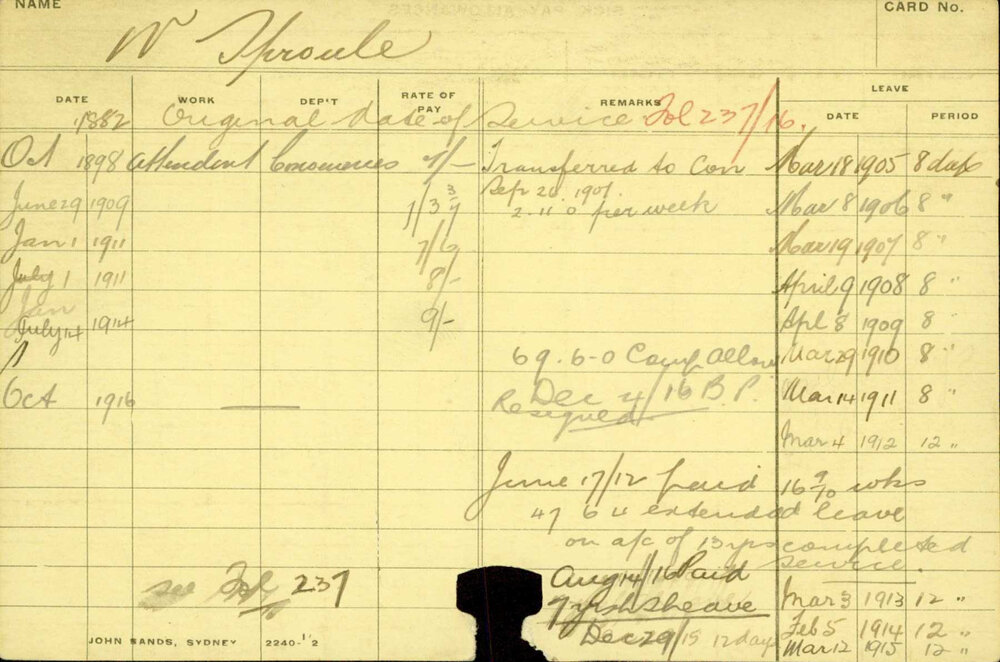 NAME CARD No.
W Sproule
DATE WORK DEP'T RATE OF PAY REMARKS LEAVE
DATE PERIOD
1882 Original date of Service Fol 237/16.
Oct 1898 Attendant 7/- Transferred to Con Mar 18 1905 8 days
Sep 20. 1907.
June 29 1909 2. 11. 0 per week Mar 8 1906 8 "
Jan 1 1911 Mar 19 1907 8 "
July 1 1911 8/- April 9 1908 8 "
Jan
July 14 1914 9/- Apl 8 1909 8 "
69. 6-0 Comp Allow Mar 29 1910 8 "
Dec 4/16 B.P.
Oct 1916 Resigned Mar 14 1911 8 "
Mar 4 1912 12 "
June 17/12 paid 16 9/10 wks
47 6 4 extended leave
on a/c of 13 yrs completed
service.
Aug 14/16 Paid
see Fol 237 Mar 3 1913 12 "
Feb 5 1914 12 "
Dec 29/15 12 days Mar 12 1915 12 "
JOHN SANDS, SYDNEY 2240-1/2